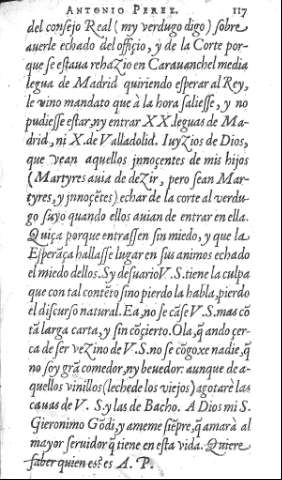 ANTONIO PEREZ. 117
del consejo Real (my verdugo digo) sobre
auerle echado del officio, y de la Corte por-
que se estaua rehazio en Carauanchel media
legua de Madrid quiriendo esperar al Rey,
le vino mandato que à la hora saliesse, y no
pudiesse estar, ny entrar XX. leguas de Ma-
drid, ni X. de Valladolid. Iuyzios de Dios,
que vean aquellos jnnoçentes de mis hijos
(Martyres auia de dezir, pero sean Mar-
tyres, y jnnoçẽtes) echar de la corte al verdu-
go suyo quando ellos auian de entrar en ella.
Quiça porque entrassen sin miedo, y que la
Esperãça hallasse lugar en sus animos echado
el miedo dellos. Sy desuario V. S. tiene la culpa
que con tal contẽto sino pierdo la habla, pierdo
el discurso natural. Ea, no se cãse V. S. mas cõ
tã larga carta, y sin cõcierto. Ola, q̃ ando çer-
ca de ser vezino de V. S. no se cõgoxe nadie, q̃
no soy grã comedor, ny beuedor: aunque de a-
quellos vinillos (leche de los viejos) agotarè las
cauas de V. S. y las de Bacho. A Dios mi S.
Gieronimo Gõdi, y ameme siẽpre, q̃ amarà al
mayor seruidor q̃ tiene en esta vida. Quiere
saber quien es? es A. P.